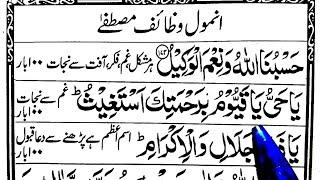 انمول وظائف مصطفےٰ
حَسْبُنَا اللّٰهُ وَنِعْمَ الْوَكِيْلُ ہر مشکل، غم، فکر، آفت سے نجات ۱۰۰ بار
يَا حَيُّ يَا قَيُّوْمُ بِرَحْمَتِكَ اَسْتَغِيْثُ غم سے نجات ۱۰۰ بار
يَا ذَا الْجَلَالِ وَالْاِكْرَامِ اسم اعظم ہے پڑھنے سے دعا قبول ۱۰۰ بار